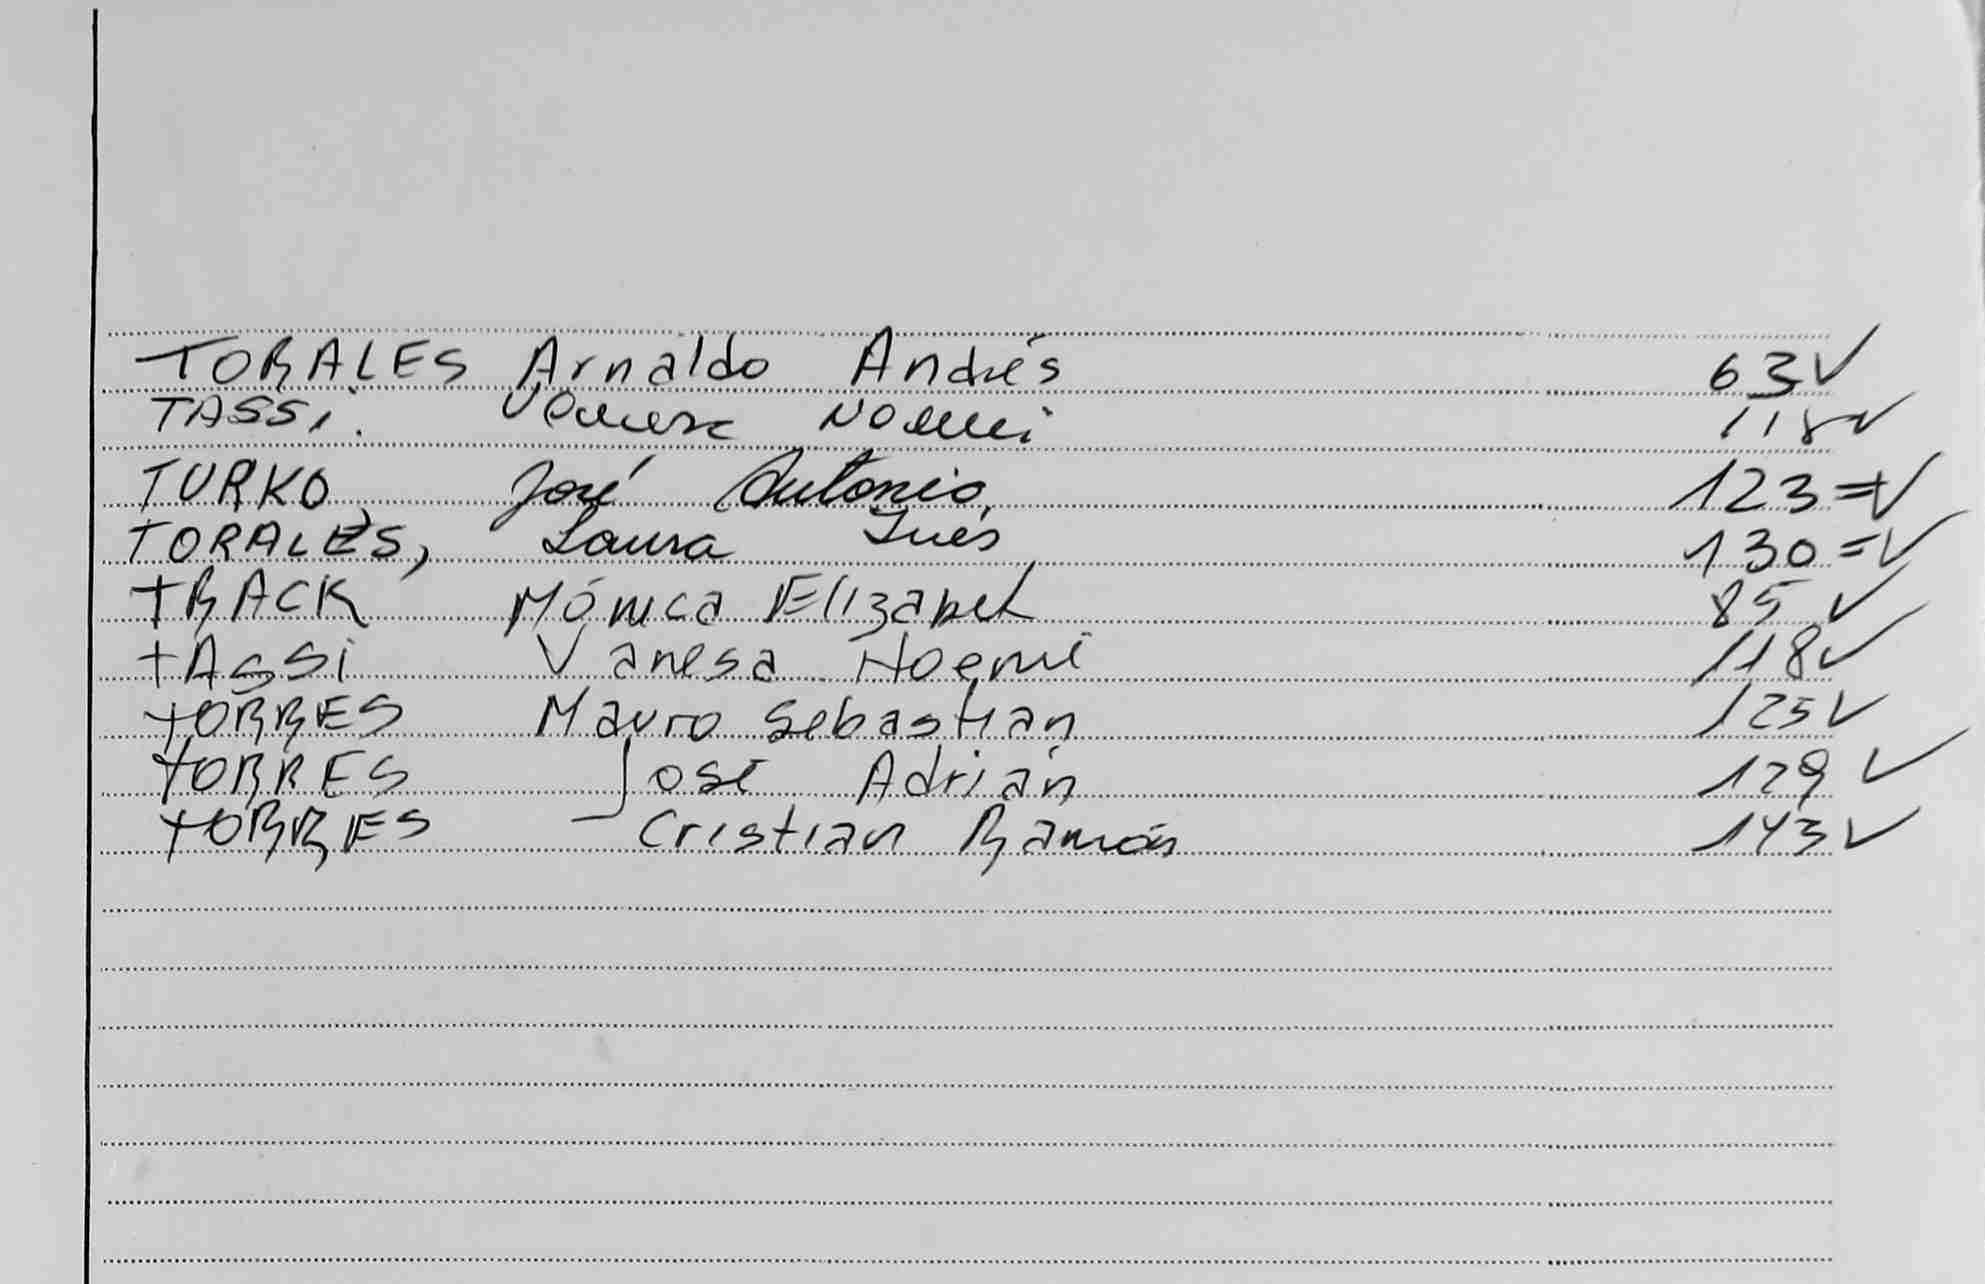 TORALES Arnaldo Andrés 63 ✓
TASSi. Vanesa Noemi 118 ✓
TURKO, José Antonio 123 = ✓
TORALES, Laura Inés 130 = ✓
TRACK Mónica Elizabet 85 ✓
TASSi Vanesa Noemi 118 ✓
TORRES Mauro Sebastian 125 ✓
TORRES José Adrián 129 ✓
TORRES Cristian Ramón 143 ✓